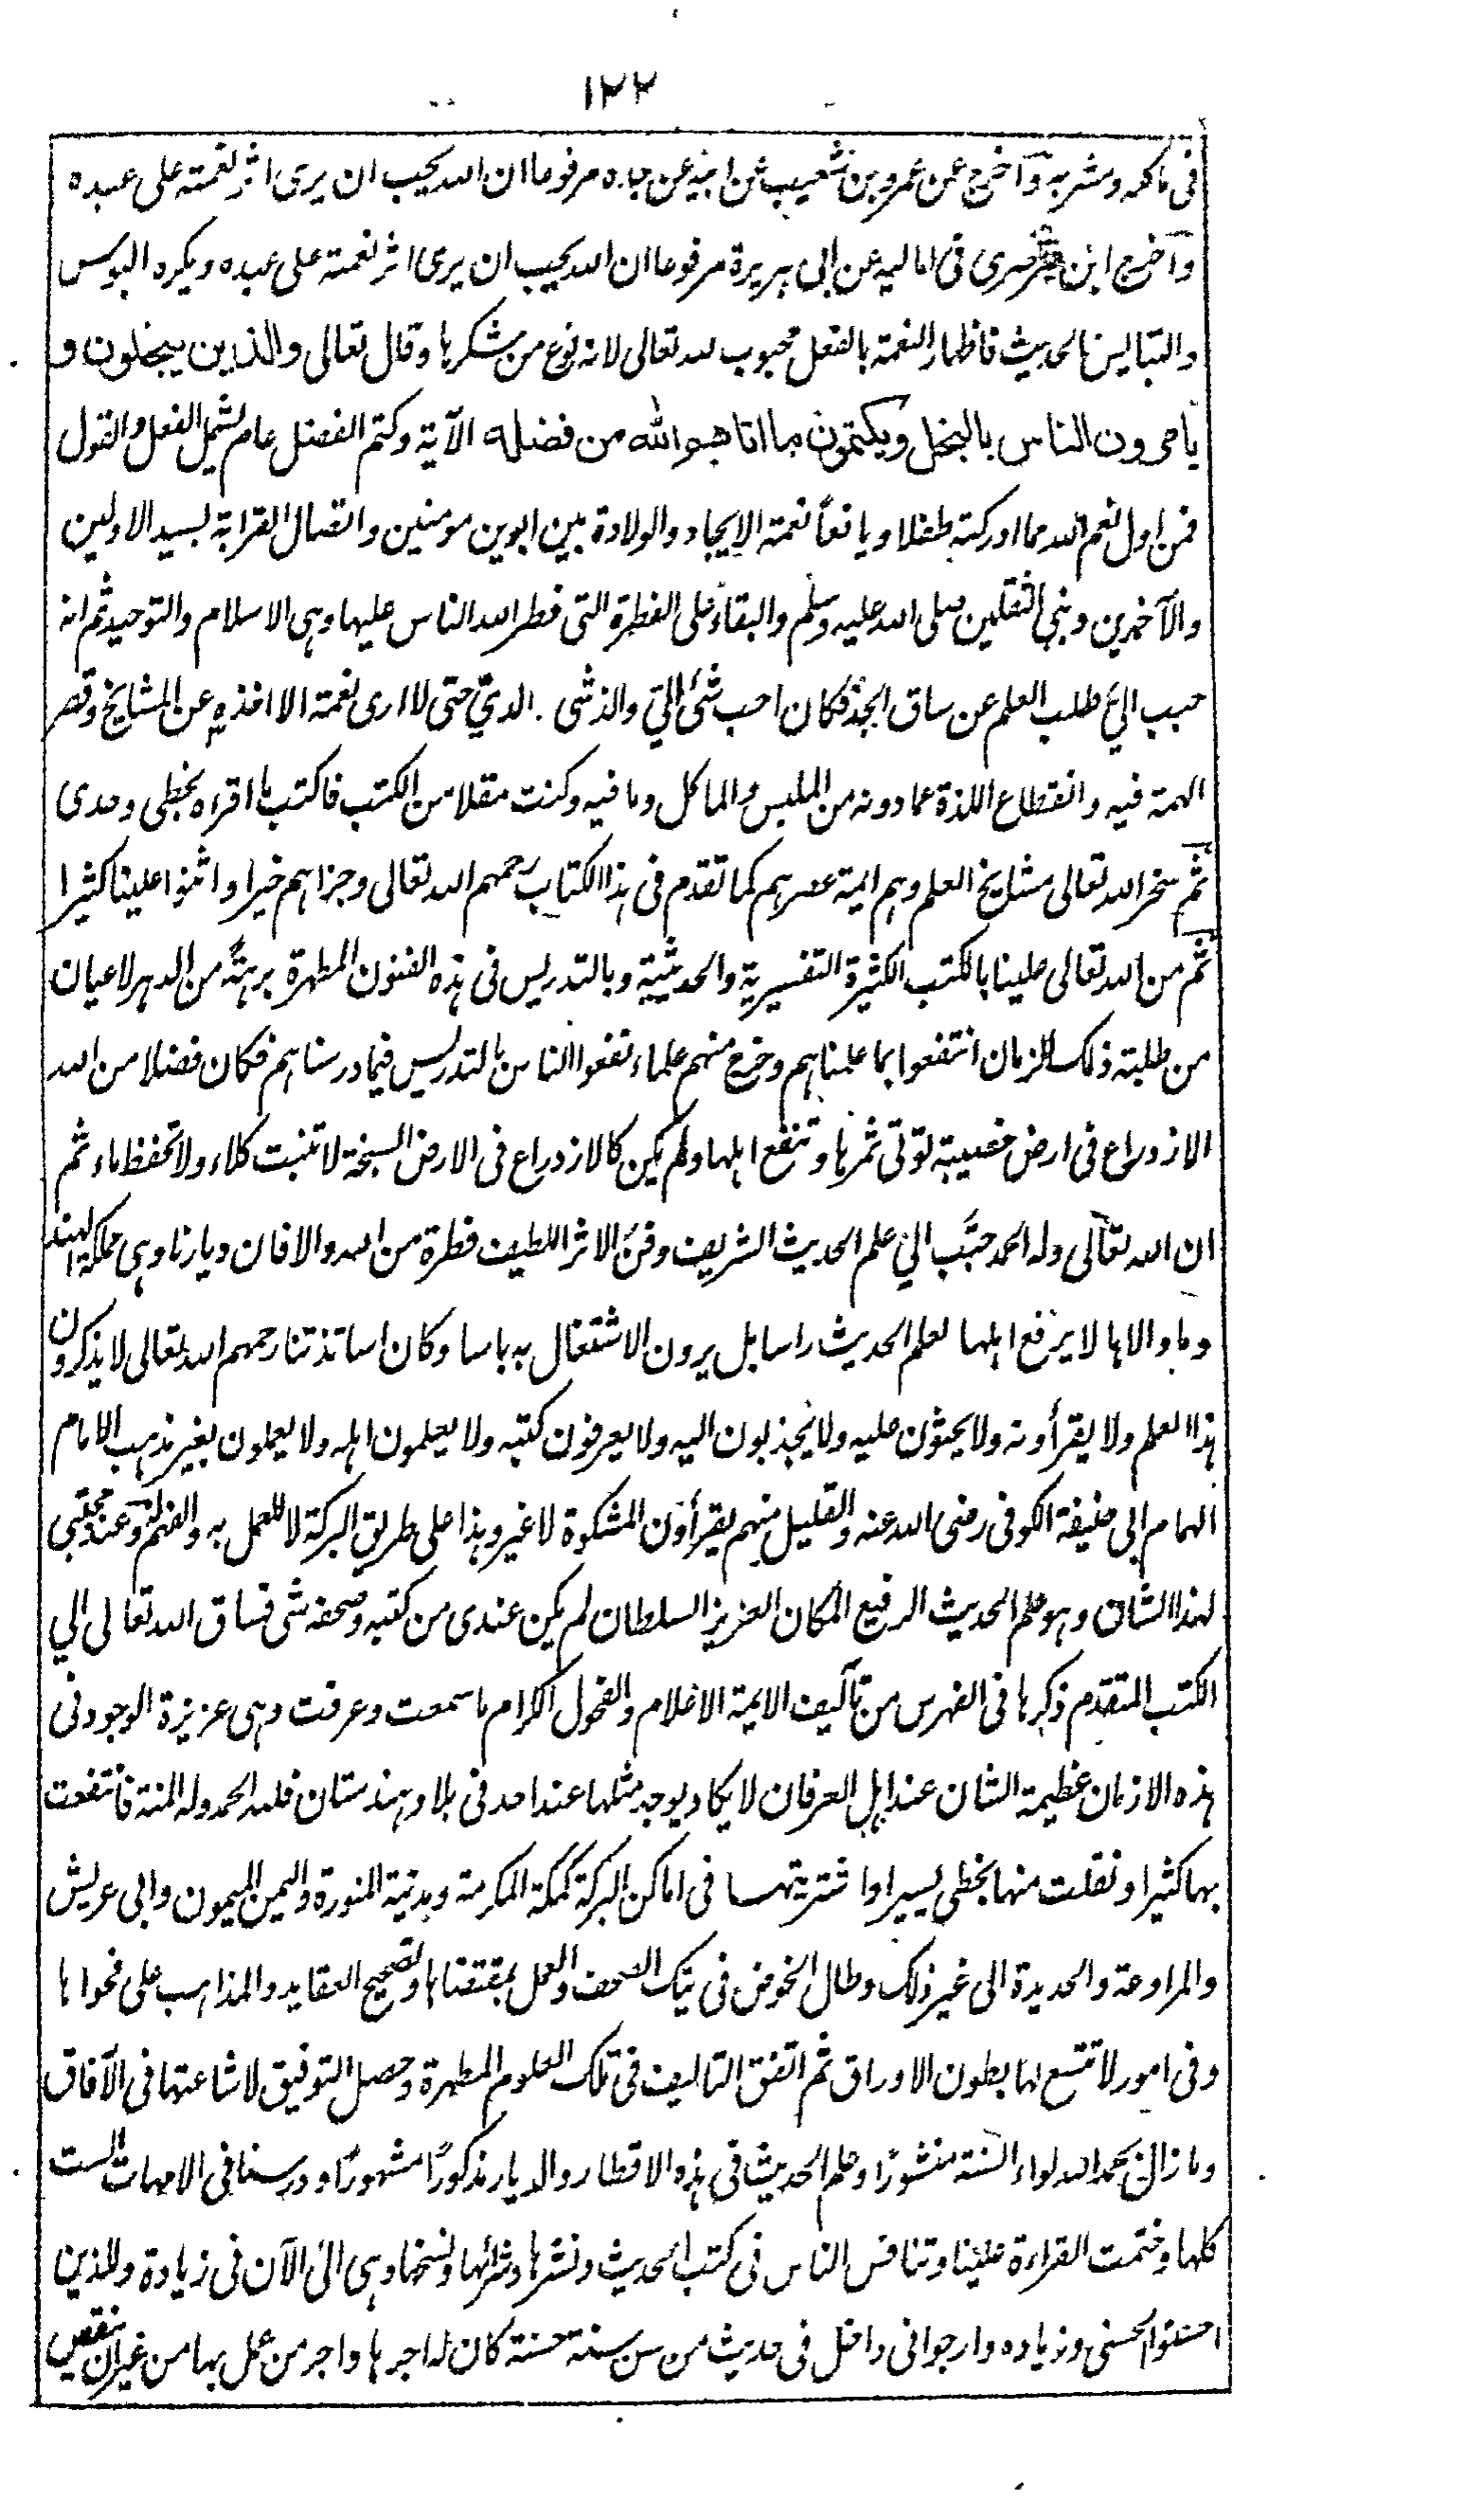 ١٢٢
فى ماكله ومشربه وآخرج عن عمرو بن شعيب عن ابيه عن جده مرفوعا ان الله يحب ان يرى اثر نعمته على عبده
وآخرج ابن فى اماليه عن ابى هريرة مرفوعا ان الله يحب ان يرى اثر نعمته على عبده ويكره البوس
والتباؤس الحديث فاظهار النعمة بالفعل محبوب لله تعالى لانه نوع من شكرها وقال تعالى والذين يبخلون و
يأمرون الناس بالبخل ويكتمون ما اتاهم الله من فضله الآية وكتم الفضل عام يشمل الفعل والقول
فمن اول نعم الله مما ادركته طفلا ويافعاً نعمة الايجاد والولادة بين ابوين مومنين واتصال القرابة بسيد الاولين
والآخرين ونبي الثقلين صلى الله عليه وسلم والبقاء على الفطرة التى فطر الله الناس عليها وهى الاسلام والتوحيد ثم انه
حبب الىّ طلب العلم عن ساق الجد فكان احب شئ الىّ والذ شى لدىّ حتى لا ارى نعمة الا اخذه عن المشايخ وقصر
الهمة فيه وانقطاع اللذة عما دونه من الملبس والماكل وما فيه وكنت مقلا من الكتب فاكتب ما اقراه بخطى وحدى
ثم سخر الله تعالى مشايخ العلم وهم ايمة عصرهم كما تقدم فى هذا الكتاب رحمهم الله تعالى وجزاهم خيرا واثنوا علينا كثيرا
ثم من الله تعالى علينا بالكتب الكثيرة التفسيرية والحديثية وبالتدريس فى هذه الفنون المطهرة برهةً من الدهر لاعيان
من طلبة ذلك الزمان انتفعوا بما علمناهم وخرج منهم علماء نفعوا الناس بالتدريس فيما درسناهم فكان فضلا من الله
الازدراع فى ارض خصيبة تؤتى ثمرها وتنفع اهلها ولم يكن كالازدراع فى الارض السبخة لا تنبت كلاء ولا تحفظ ماء ثم
ان الله تعالى وله الحمد حبَّب الىّ علم الحديث الشريف وفن الاثر اللطيف فطرة من الله والا فان ديارنا وهى مملكة الهند
وما والاها لا يرفع اهلها لعلم الحديث راسا بل يرون الاشتغال به باسا وكان اساتذتنا رحمهم الله تعالى لا يذكرون
هذا العلم ولا يقرأونه ولا يحثون عليه ولا يجذبون اليه ولا يعرفون كتبه ولا يعلمون اهله ولا يعملون بغير مذهب الامام
الهمام ابى حنيفة الكوفى رضى الله عنه والقليل منهم يقرأون المشكوة لا غير وهذا على طريق البركة لا للعمل به والفهم له وعند محبتى
لهذا الشان وهو علم الحديث الرفيع المكان العزيز السلطان لم يكن عندى من كتبه وصحفه شى فساق الله تعالى الي
الكتب المتقدم ذكرها فى الفهرس من تآليف الايمة الاعلام والفحول الكرام ما سمعت وعرفت وهى عزيزة الوجود فى
هذه الازمان عظيمة الشان عند اهل العرفان لا يكاد يوجد مثلها عند احد فى بلاد هندستان فلله الحمد وله المنة فانتفعت
بها كثيرا ونقلت منها بخطى يسيرا واشتريتها فى اماكن البركة كمكة المكرمة ومدينة المنورة واليمن الميمون وابى عريش
والمراوعة والحديدة الى غير ذلك وطال الخوض فى تيك الصحف والعمل بمقتضاها وتصحيح العقايد والمذاهب على فحواها
وفى امور لا تتسع لها بطون الاوراق ثم اتفق التاليف فى تلك العلوم المطهرة وحصل التوفيق لاشاعتها فى الآفاق
وما زال بحمد الله لواء السنة منشورًا وعلم الحديث فى هذه الاقطار والديار مذكورًا مشهورًا ودرسنا فى الامهات الست
كلها وختمت القراءة علينا وتنافس الناس فى كتب الحديث ونشرها وشرائها ونسخها وهى الى الآن فى زيادة وللذين
احسنوا الحسنى وزياده وارجوا انى داخل فى حديث من سن سنة حسنة كان له اجرها واجر من عمل بها من غير ان ينقص